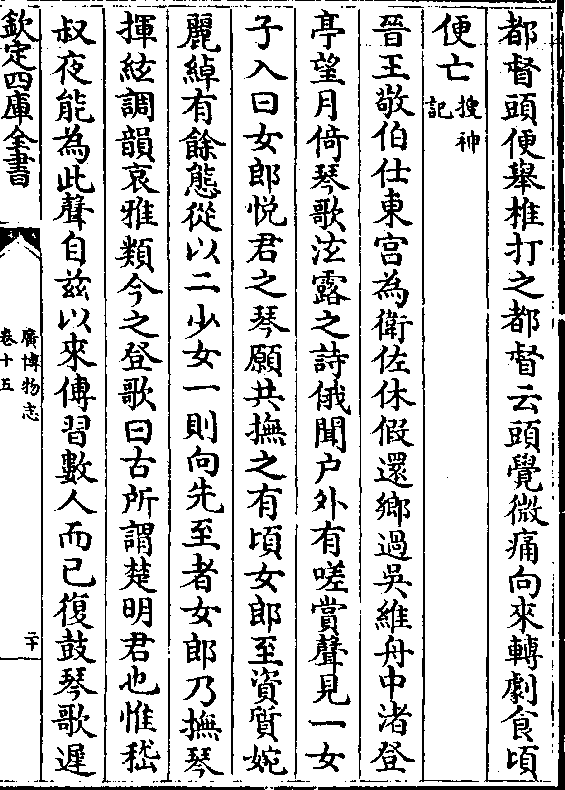 都督頭便舉椎打之都督云頭覺微痛向來轉劇食頃
便亡搜神
記
晉王敬伯仕東宮為衛佐休假還鄉過吳維舟中渚登
亭望月倚琴歌泫露之詩俄聞户外有嗟賞聲見一女
子入曰女郎悦君之琴願共撫之有頃女郎至資質婉
麗綽有餘態從以二少女一則向先至者女郎乃撫琴
揮絃調韻哀雅類今之登歌曰古所謂楚明君也惟嵇
叔夜能為此聲自兹以來傳習數人而已復鼓琴歌遲
欽定四庫全書
廣博物志
卷十五
二十